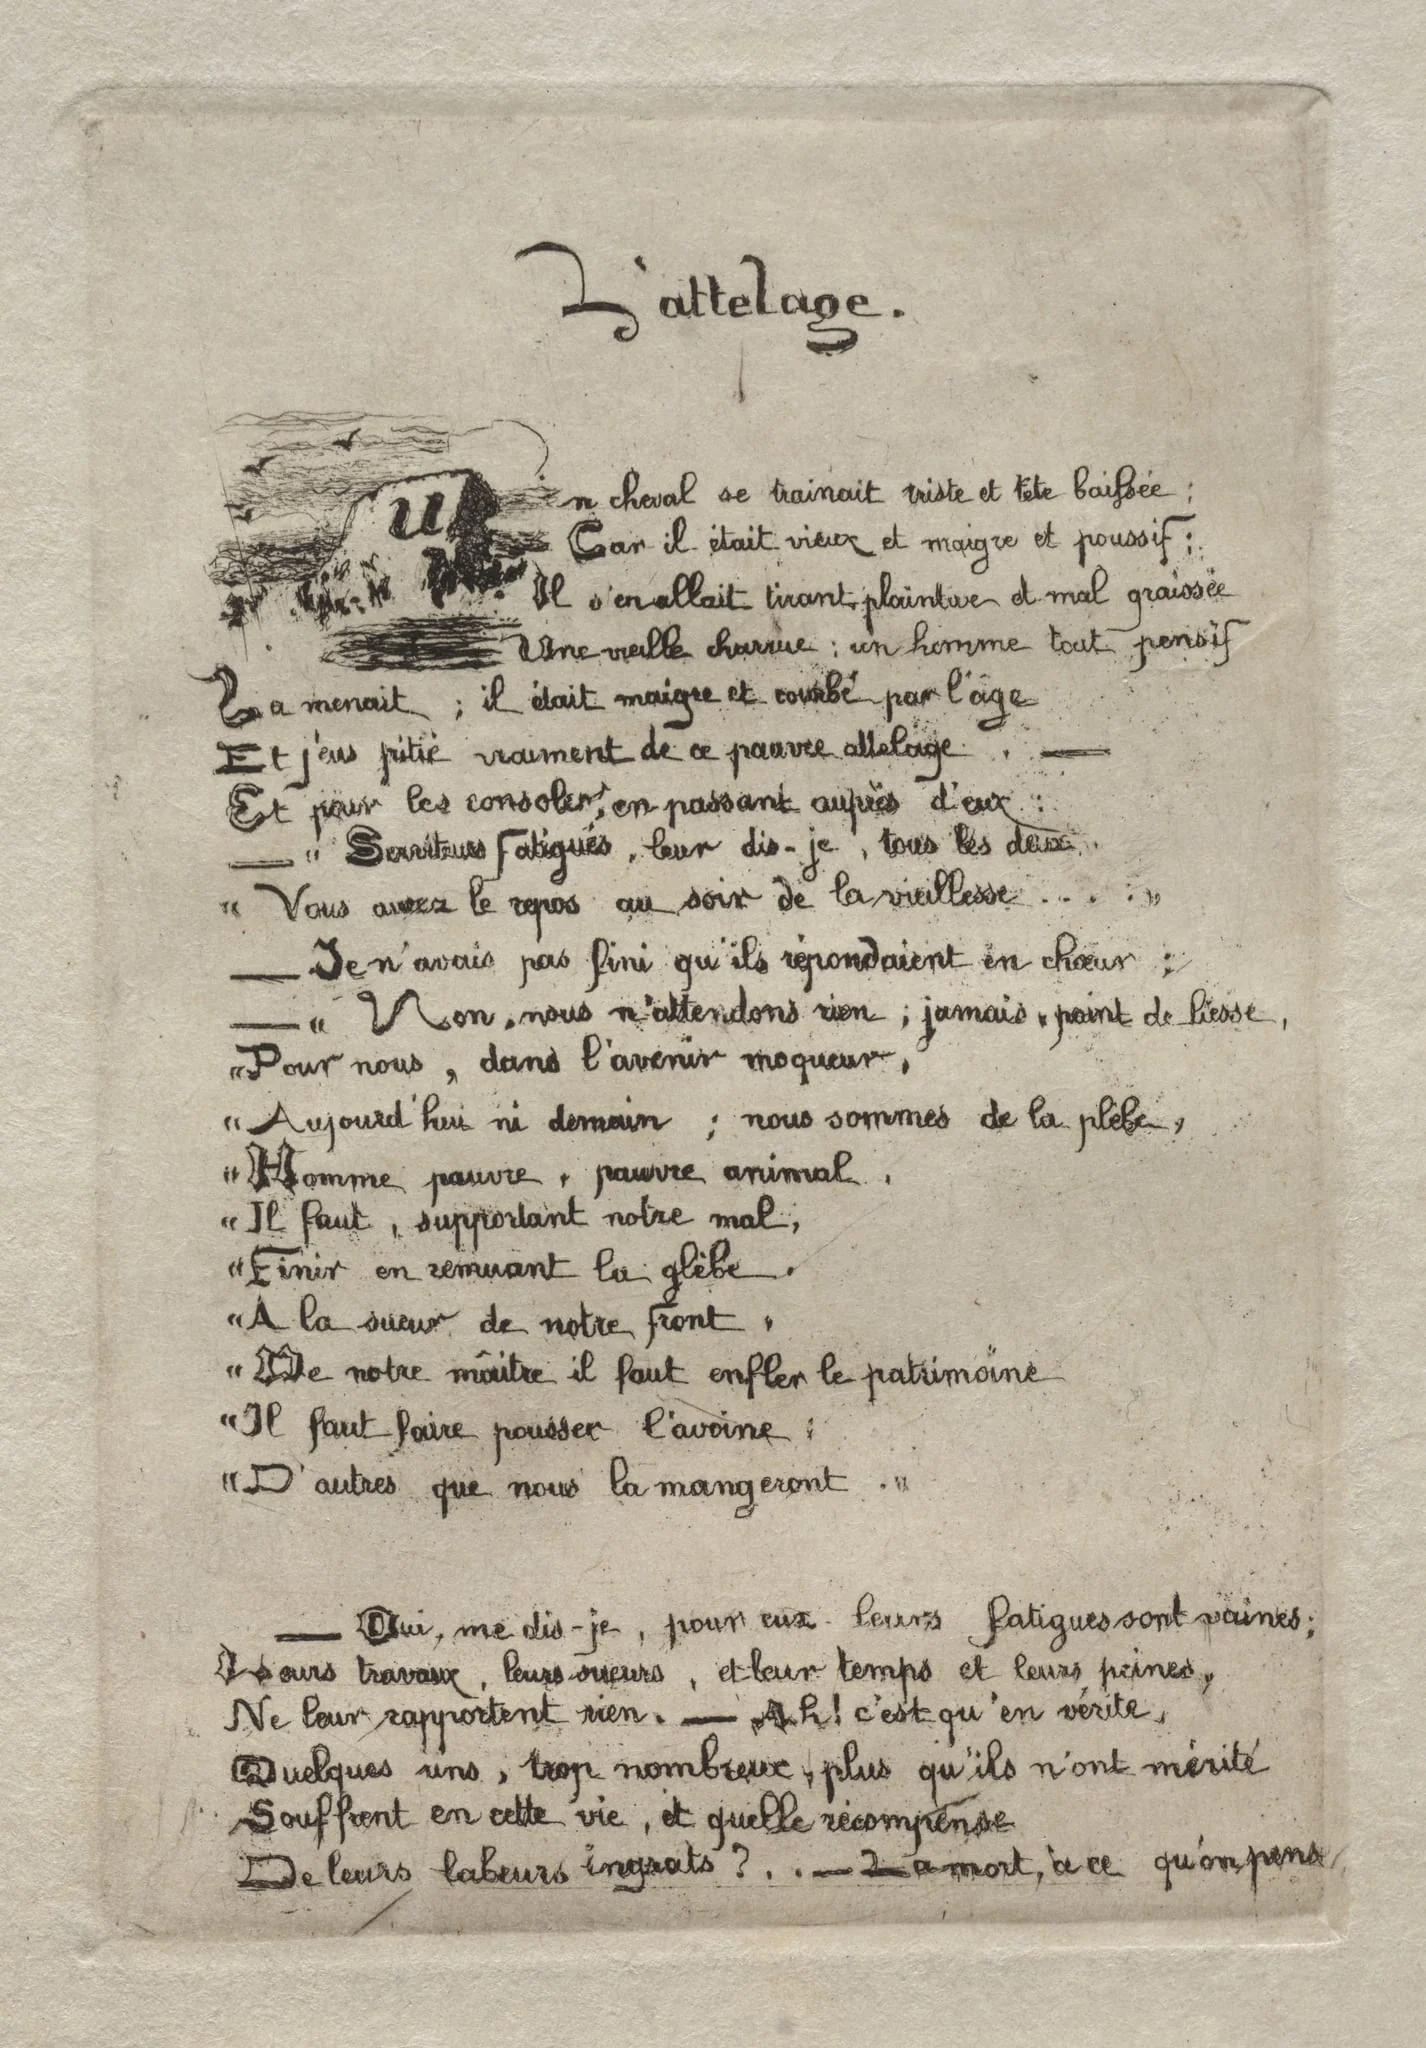 L'attelage.
Un cheval se trainait triste et tete baissée ;
Car il était vieux et maigre et poussif ;
Il s'en allait tirant plaintive et mal graissée
Une vieille charrue ; un homme tout pensif
La menait ; il était maigre et courbé par l'âge
Et j'eus pitié vraiment de ce pauvre attelage . —
Et pour les consoler, en passant auprès d'eux :
— " Serviteurs fatigués, leur dis-je, tous les deux,
" Vous aurez le repos au soir de la vieillesse . . . . "
— Je n'avais pas fini qu'ils répondaient en chœur :
— " Non, nous n'attendons rien ; jamais, point de liesse,
" Pour nous, dans l'avenir moqueur,
" Aujourd'hui ni demain ; nous sommes de la plèbe,
" Homme pauvre, pauvre animal,
" Il faut, supportant notre mal,
" Finir en remuant la glèbe.
" A la sueur de notre front,
" De notre maître il faut enfler le patrimoine
" Il faut faire pousser l'avoine ;
" D'autres que nous la mangeront . "
— Oui, me dis-je, pour eux leurs fatigues sont vaines ;
Leurs travaux, leurs sueurs, et leur temps et leurs peines,
Ne leur rapportent rien. — Ah ! c'est qu'en vérité,
Quelques uns, trop nombreux, plus qu'ils n'ont mérité
Souffrent en cette vie, et quelle récompense
De leurs labeurs ingrats ? . . — La mort, à ce qu'on pens